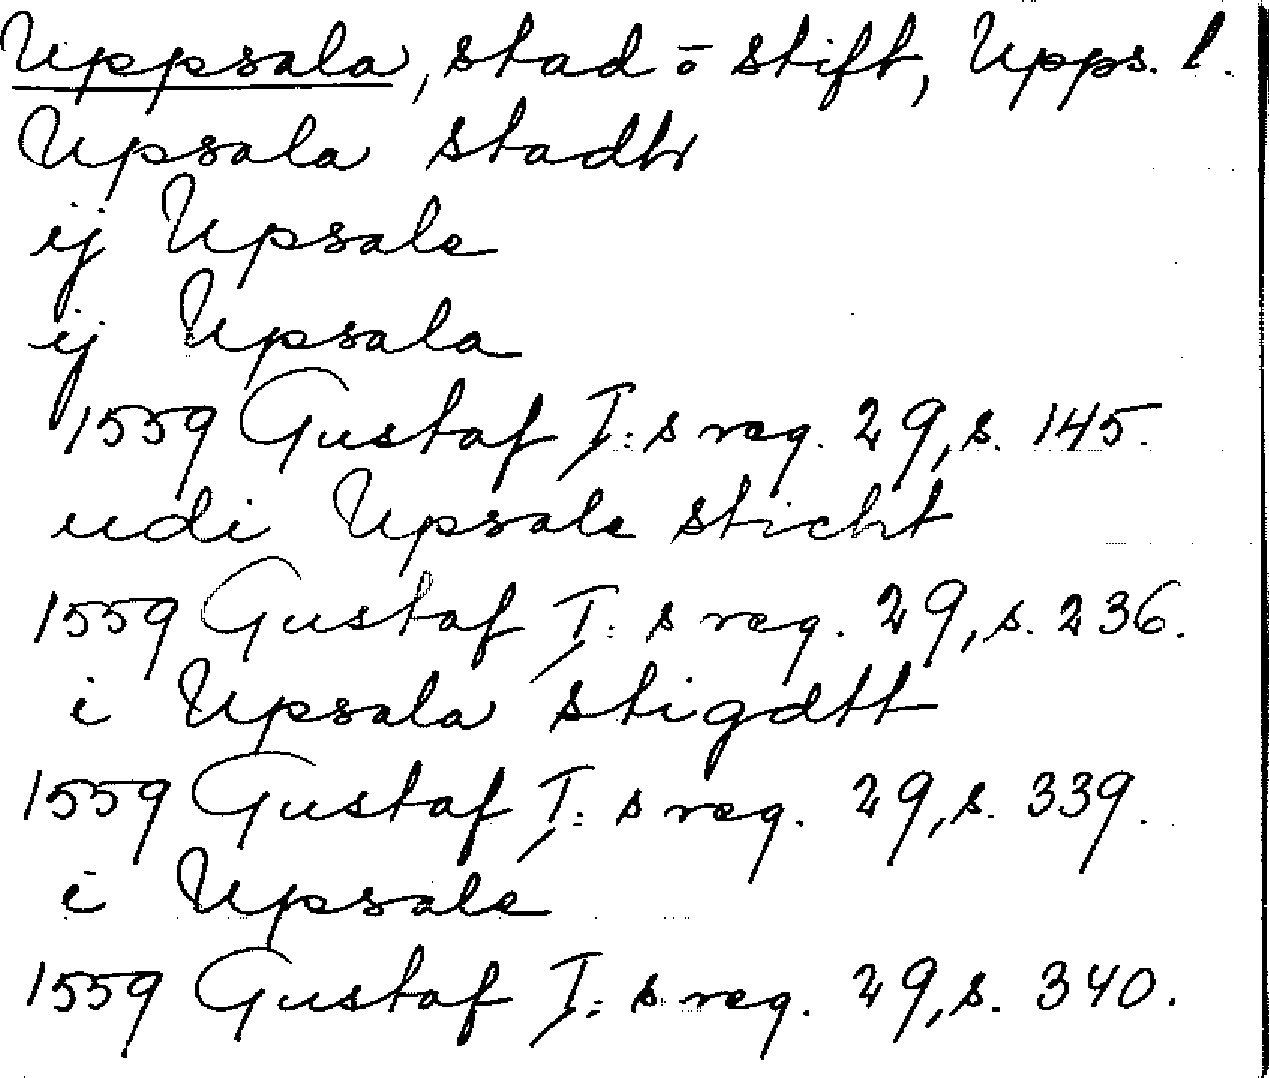 Uppsala, stad o stift, Upps. l.
Upsala stadh
ij Upsale
ij Upsala
1559 Gustaf I:s reg. 29, s. 145.
udi Upsale sticht
1559 Gustaf I:s reg. 29, s. 236.
i Upsala stigdtt
1559 Gustaf I:s reg. 29, s. 339.
i Upsale
1559 Gustaf I:s reg. 29, s. 340.